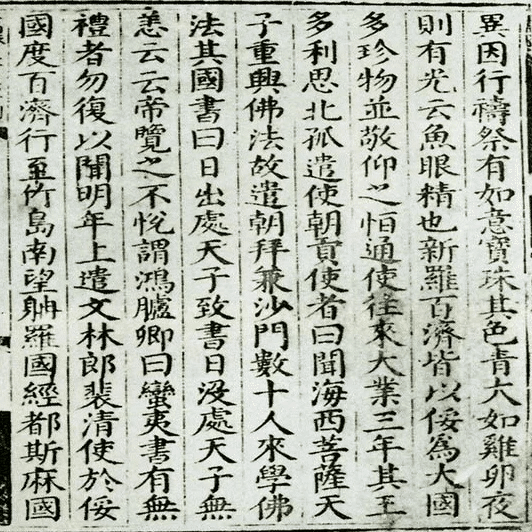 異因行禱祭有如意寶珠其色青大如雞卵夜
則有光云魚眼精也新羅百濟皆以俀為大國
多珍物並敬仰之恒通使往來大業三年其王
多利思北孤遣使朝貢使者曰聞海西菩薩天
子重興佛法故遣朝拜兼沙門數十人來學佛
法其國書曰日出處天子致書日沒處天子無
恙云云帝覽之不悅謂鴻臚卿曰蠻夷書有無
禮者勿復以聞明年上遣文林郎裴清使於俀
國度百濟行至竹島南望聃羅國經都斯麻國